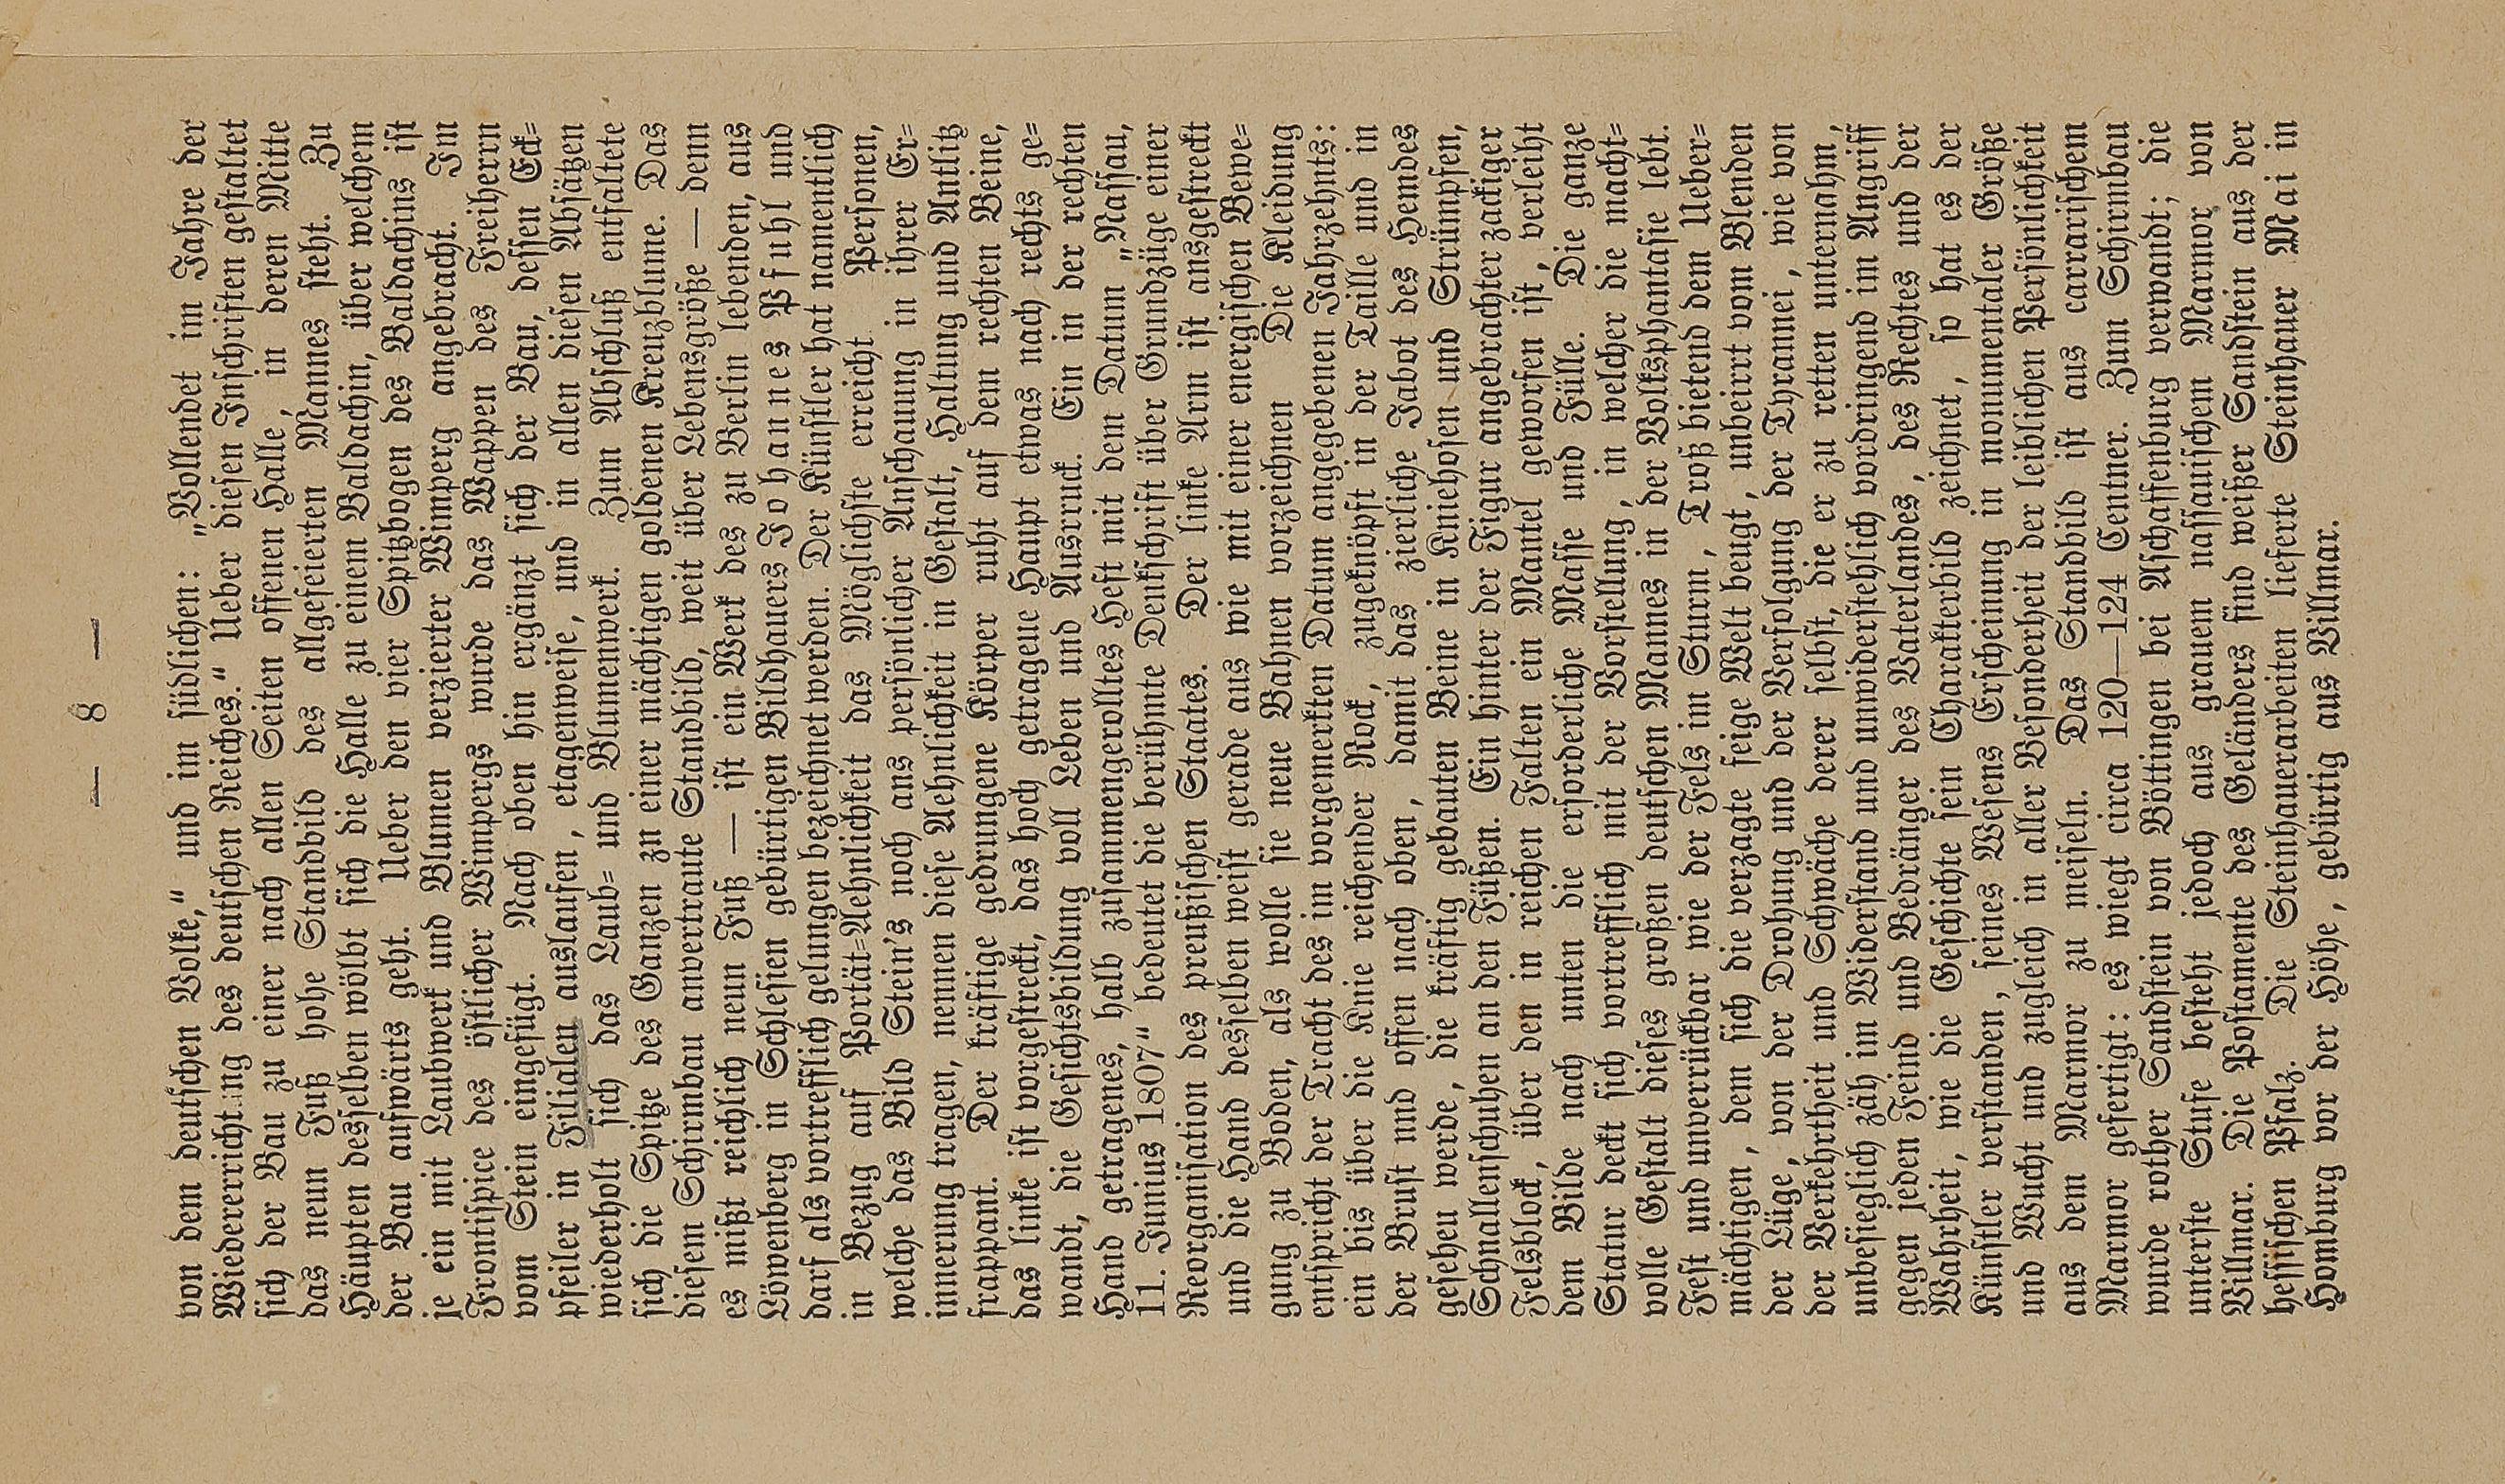 — 8 —
von dem deutschen Volke,“ und im südlichen: „Vollendet im Jahre der
Wiedererrichtung des deutschen Reiches.“ Ueber diesen Inschriften gestaltet
sich der Bau zu einer nach allen Seiten offenen Halle, in deren Mitte
das neun Fuß hohe Standbild des allgefeierten Mannes steht. Zu
Häupten desselben wölbt sich die Halle zu einem Baldachin, über welchem
der Bau aufwärts geht. Ueber den vier Spitzbogen des Baldachins ist
je ein mit Laubwerk und Blumen verzierter Wimperg angebracht. Im
Frontispice des östlicher Wimpergs wurde das Wappen des Freiherrn
vom Stein eingefügt. Nach oben hin ergänzt sich der Bau, dessen Eck=
pfeiler in Filialen auslaufen, etagenweise, und in allen diesen Absätzen
wiederholt sich das Laub= und Blumenwerk. Zum Abschluß entfaltete
sich die Spitze des Ganzen zu einer mächtigen goldenen Kreuzblume. Das
diesem Schirmbau anvertraute Standbild, weit über Lebensgröße — denn
es mißt reichlich neun Fuß — ist ein Werk des zu Berlin lebenden, aus
Löwenberg in Schlesien gebürtigen Bildhauers Johannes Pfuhl und
darf als vortrefflich gelungen bezeichnet werden. Der Künstler hat namentlich
in Bezug auf Portät=Aehnlichkeit das Möglichste erreicht. Personen,
welche das Bild Stein's noch aus persönlicher Anschauung in ihrer Er=
innerung tragen, nennen diese Aehnlichkeit in Gestalt, Haltung und Antlitz
frappant. Der kräftige gedrungene Körper ruht auf dem rechten Beine,
das linke ist vorgestreckt, das hoch getragene Haupt etwas nach rechts ge=
wandt, die Gesichtsbildung voll Leben und Ausrruck. Ein in der rechten
Hand getragenes, halb zusammengerolltes Heft mit dem Datum „Nassau,
11. Junius 1807“ bedeutet die berühmte Denkschrift über Grundzüge einer
Reorganisation des preußischen Staates. Der linke Arm ist ausgestreckt
und die Hand desselben weist gerade aus wie mit einer energischen Bewe=
gung zu Boden, als wolle sie neue Bahnen vorzeichnen Die Kleidung
entspricht der Tracht des im vorgemerkten Datum angegebenen Jahrzehnts:
ein bis über die Knie reichender Rock, zugeknöpft in der Taille und in
der Brust und offen nach oben, damit das zierliche Jabot des Hemdes
gesehen werde, die kräftig gebauten Beine in Kniehosen und Strümpfen,
Schnallenschuhen an den Füßen. Ein hinter der Figur angebrachter zackiger
Felsblock, über den in reichen Falten ein Mantel geworfen ist, verleiht
dem Bilde nach unten die erforderliche Masse und Fülle. Die ganze
Statur deckt sich vortrefflich mit der Vorstellung, in welcher die macht=
volle Gestalt dieses großen deutschen Mannes in der Volksphantasie lebt.
Fest und unverrückbar wie der Fels im Sturm, Troß bietend dem Ueber=
mächtigen, dem sich die verzagte feige Welt beugt, unbeirrt vom Blenden
der Lüge, von der Drohung und der Verfolgung der Thrannei, wie von
der Verkehrtheit und Schwäche derer selbst, die er zu retten unternahm,
unbesieglich zäh im Widerstand und unwiderstehlich vordringend im Angriff
gegen jeden Feind und Bedränger des Vaterlandes, des Rechtes und der
Wahrheit, wie die Geschichte sein Charakterbild zeichnet, so hat es der
Künstler verstanden, seines Wesens Erscheinung in monumentaler Größe
und Wucht und zugleich in aller Besonderheit der leiblichen Persönlichkeit
aus dem Marmor zu meiseln. Das Standbild ist aus carrarischem
Marmor gefertigt: es wiegt circa 120—124 Centner. Zum Schirmbau
wurde rother Sandstein von Böttingen bei Aschaffenburg verwandt; die
unterste Stufe besteht jedoch aus grauem nassauischem Marmor vom
Villmar. Die Postamente des Geländers sind weißer Sandstein aus der
hessischen Pfalz. Die Steinhauerarbeiten lieferte Steinhauer Mai in
Homburg vor der Höhe, gebürtig aus Villmar.